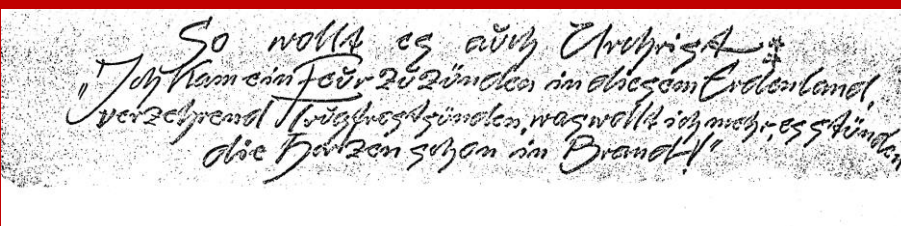 So wollt es auch Urchrist
„Ich kam ein Feur zu zünden in diesem Erdenland,
verzehrend Trugfrostsünden, was wollt ich mehr, es stünden
die Herzen schon in Brand-!"